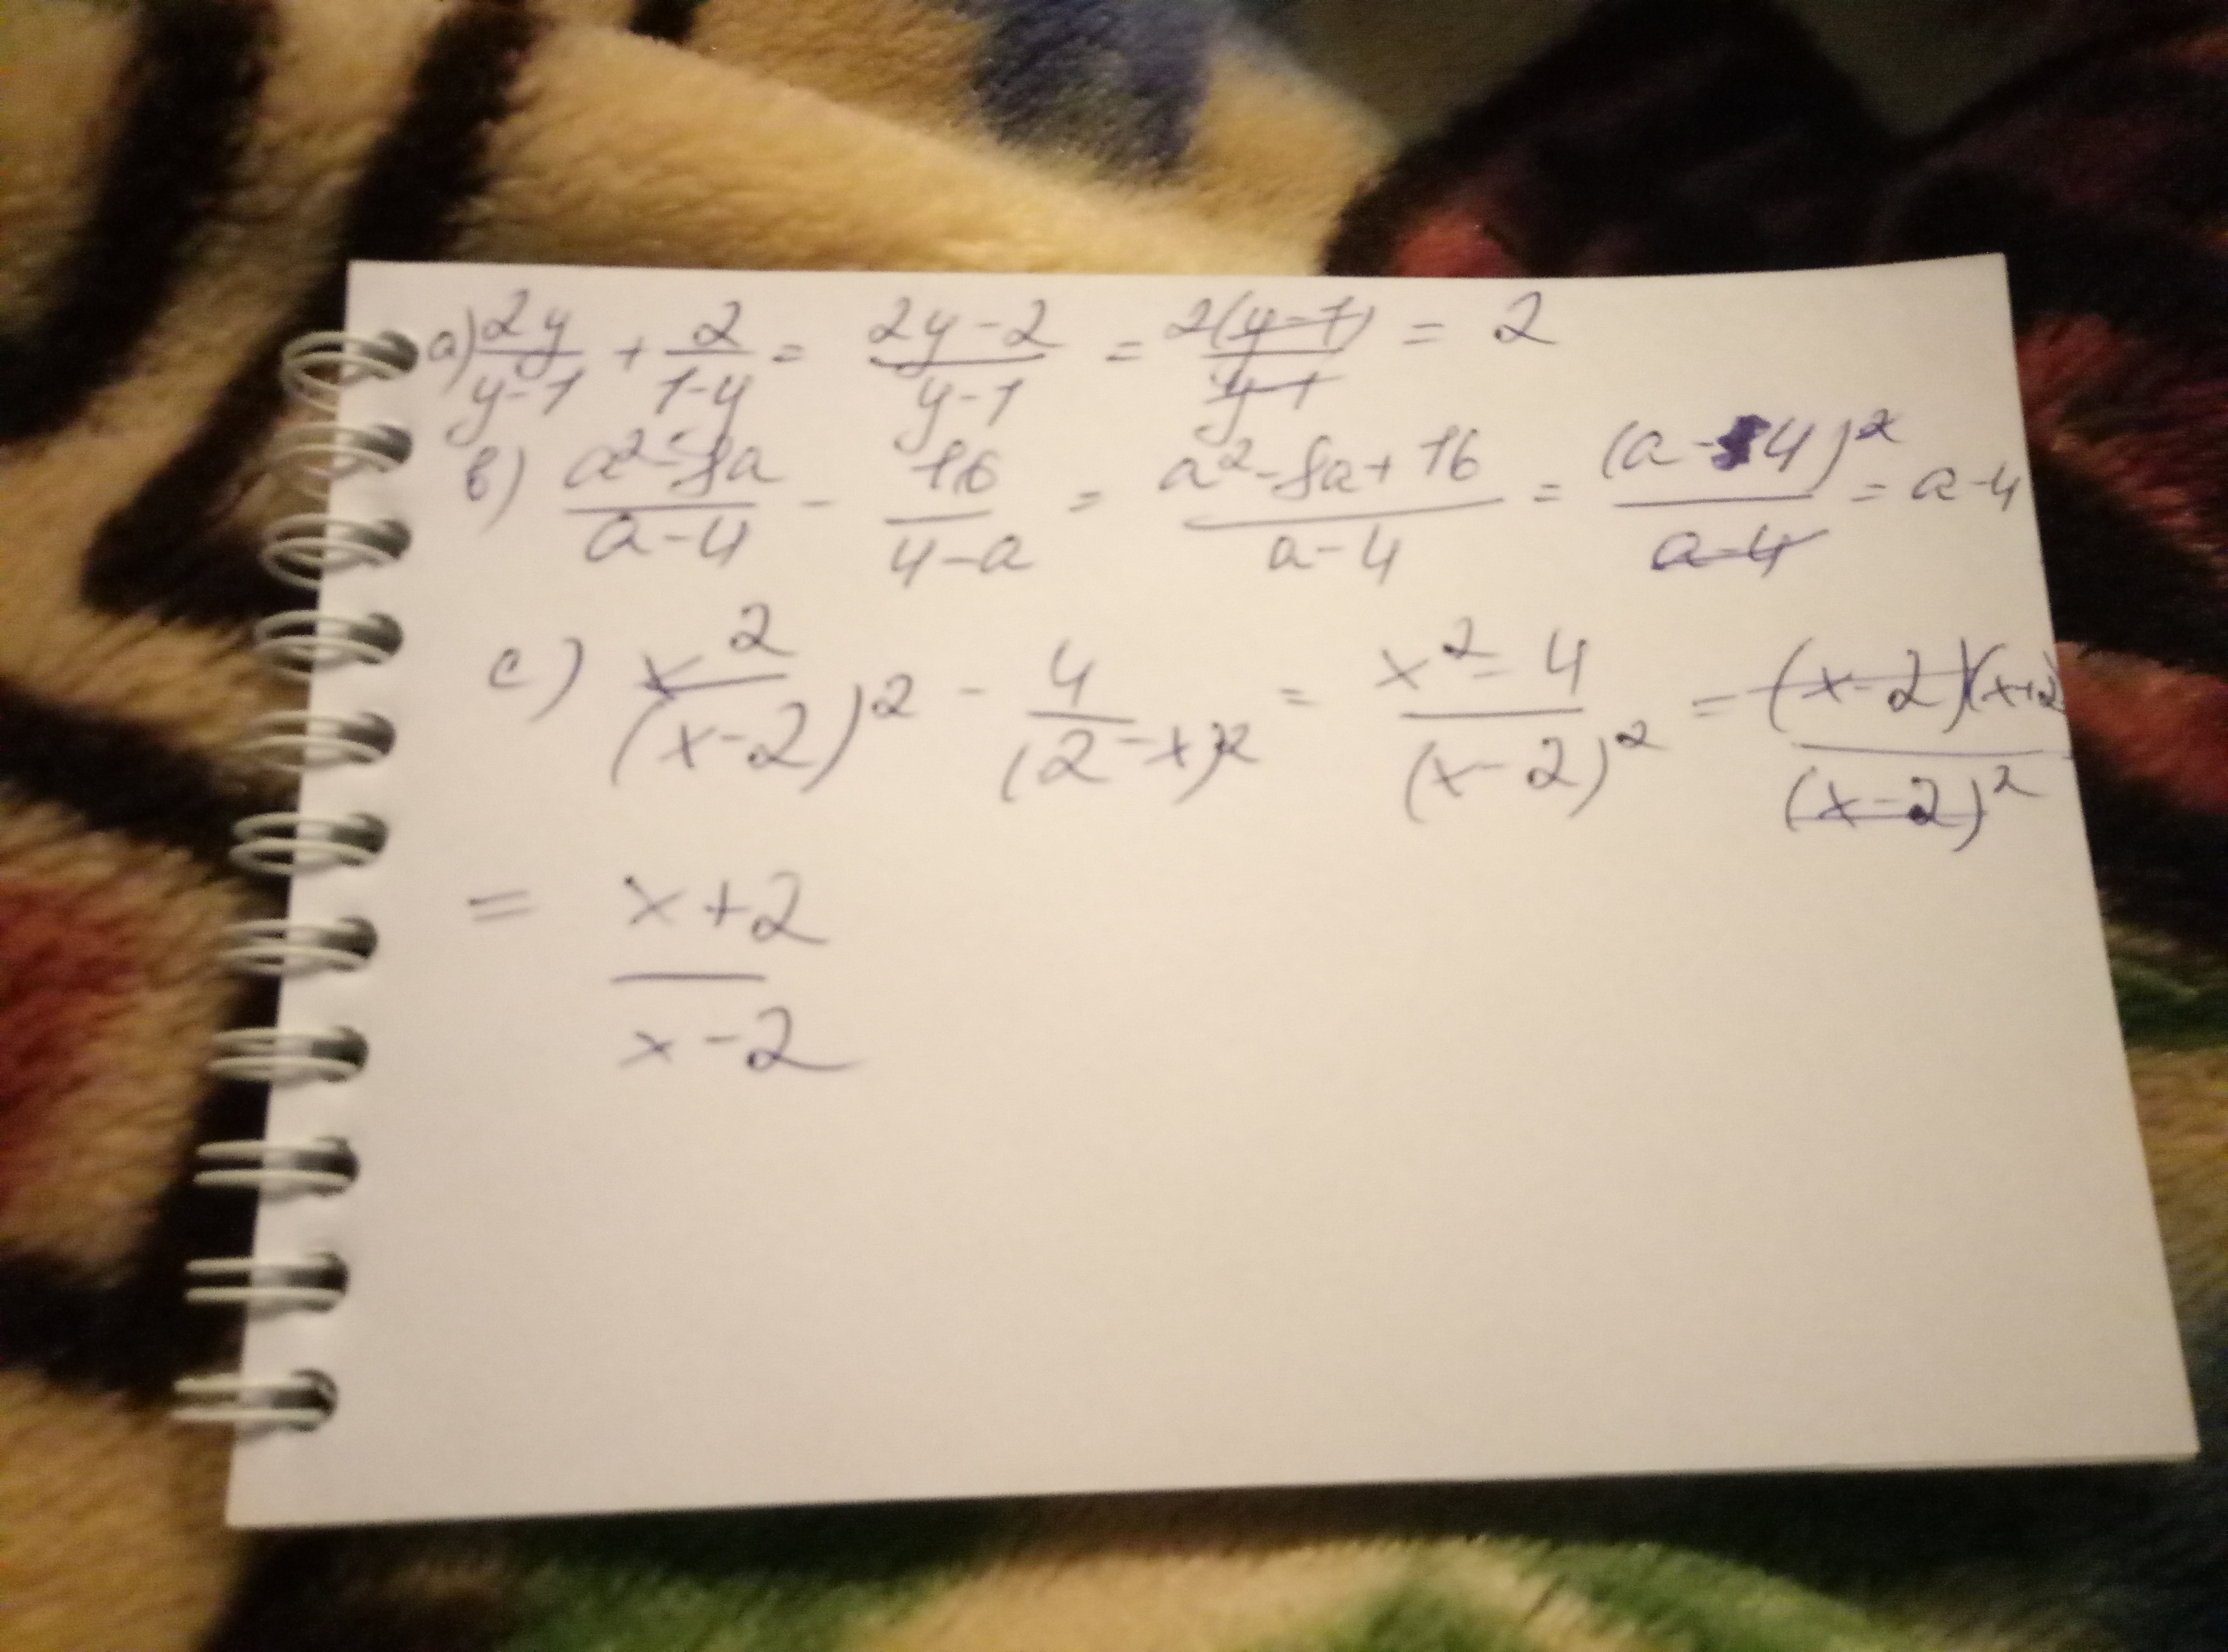 a) 2y/(y-1) + 2/(1-y) = (2y-2)/(y-1) = 2(y-1)/(y-1) = 2
b) (a²-8a)/(a-4) - 16/(4-a) = (a²-8a+16)/(a-4) = (a-4)²/(a-4) = a-4
c) x²/(x-2)² - 4/(2-x)² = (x²-4)/(x-2)² = (x-2)(x+2)/(x-2)²
= (x+2)/(x-2)